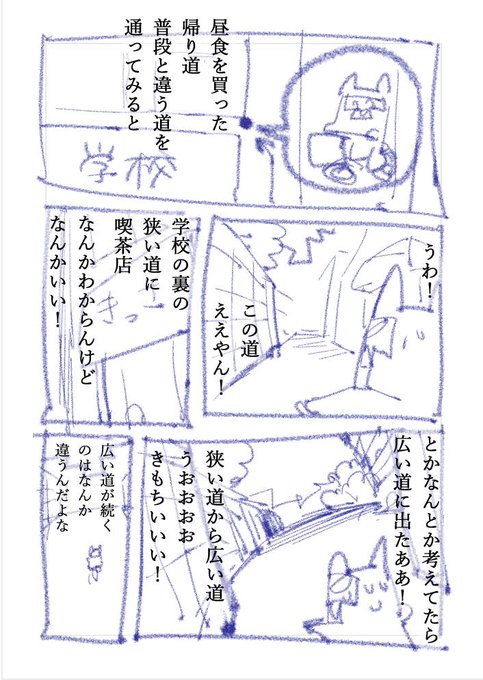 昼食を買った
帰り道
普段と違う道を
通ってみると
学校
うわ！
この道
ええやん！
学校の裏の
狭い道に
喫茶店
なんかわからんけど
なんかいい！
きっ
とかなんとか考えてたら
広い道に出たああ！
狭い道から広い道
うおおおお
きもちいいい！
広い道が続く
のはなんか
違うんだよな